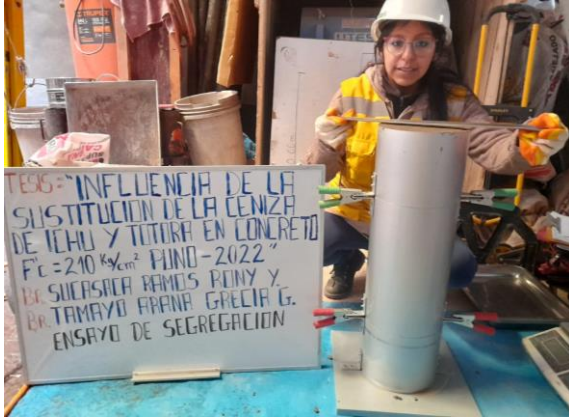 TRUPER
TESIS: "INFLUENCIA DE LA
SUSTITUCION DE LA CENIZA
DE ICHU Y TOTORA EN CONCRETO
F'c = 210 Kg/cm² PUNO - 2022"
Br. SUCASACA RAMOS RONY Y.
Br. TAMAYO ARANA GRECIA G.
ENSAYO DE SEGREGACION